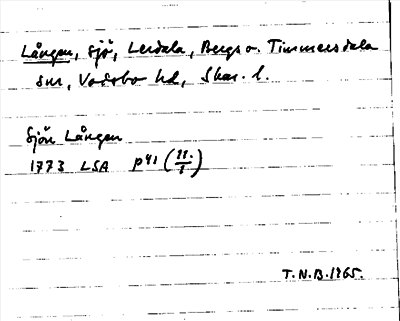 Lången, sjö, Lerdala, Bergs o. Timmersdala
snr, Vadsbo hd, Skar. l.
Sjön Lången
1773 LSA p41 (11:/1)
T.N.B. 1965.